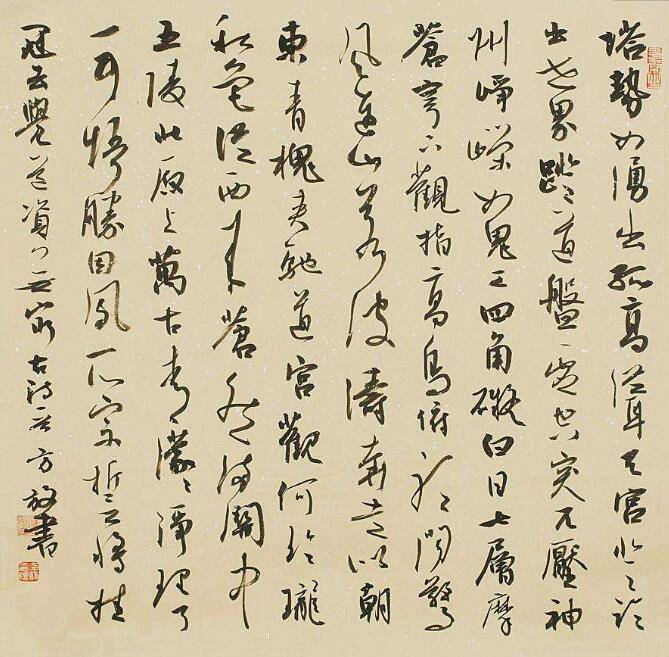 塔勢如湧出孤高聳天宮登臨
出世界蹬道盤虛空突兀壓神
州崢嶸如鬼工四角礙白日七層摩
蒼穹下觀指高鳥俯聽聞驚
風連山若波濤奔走似朝
東青槐夾馳道宮觀何玲瓏
秋色從西來蒼然滿關中
五陵北原上萬古青濛濛淨理了
可悟勝因夙所宗誓將掛
冠去覺道資無窮 古詩 方放書